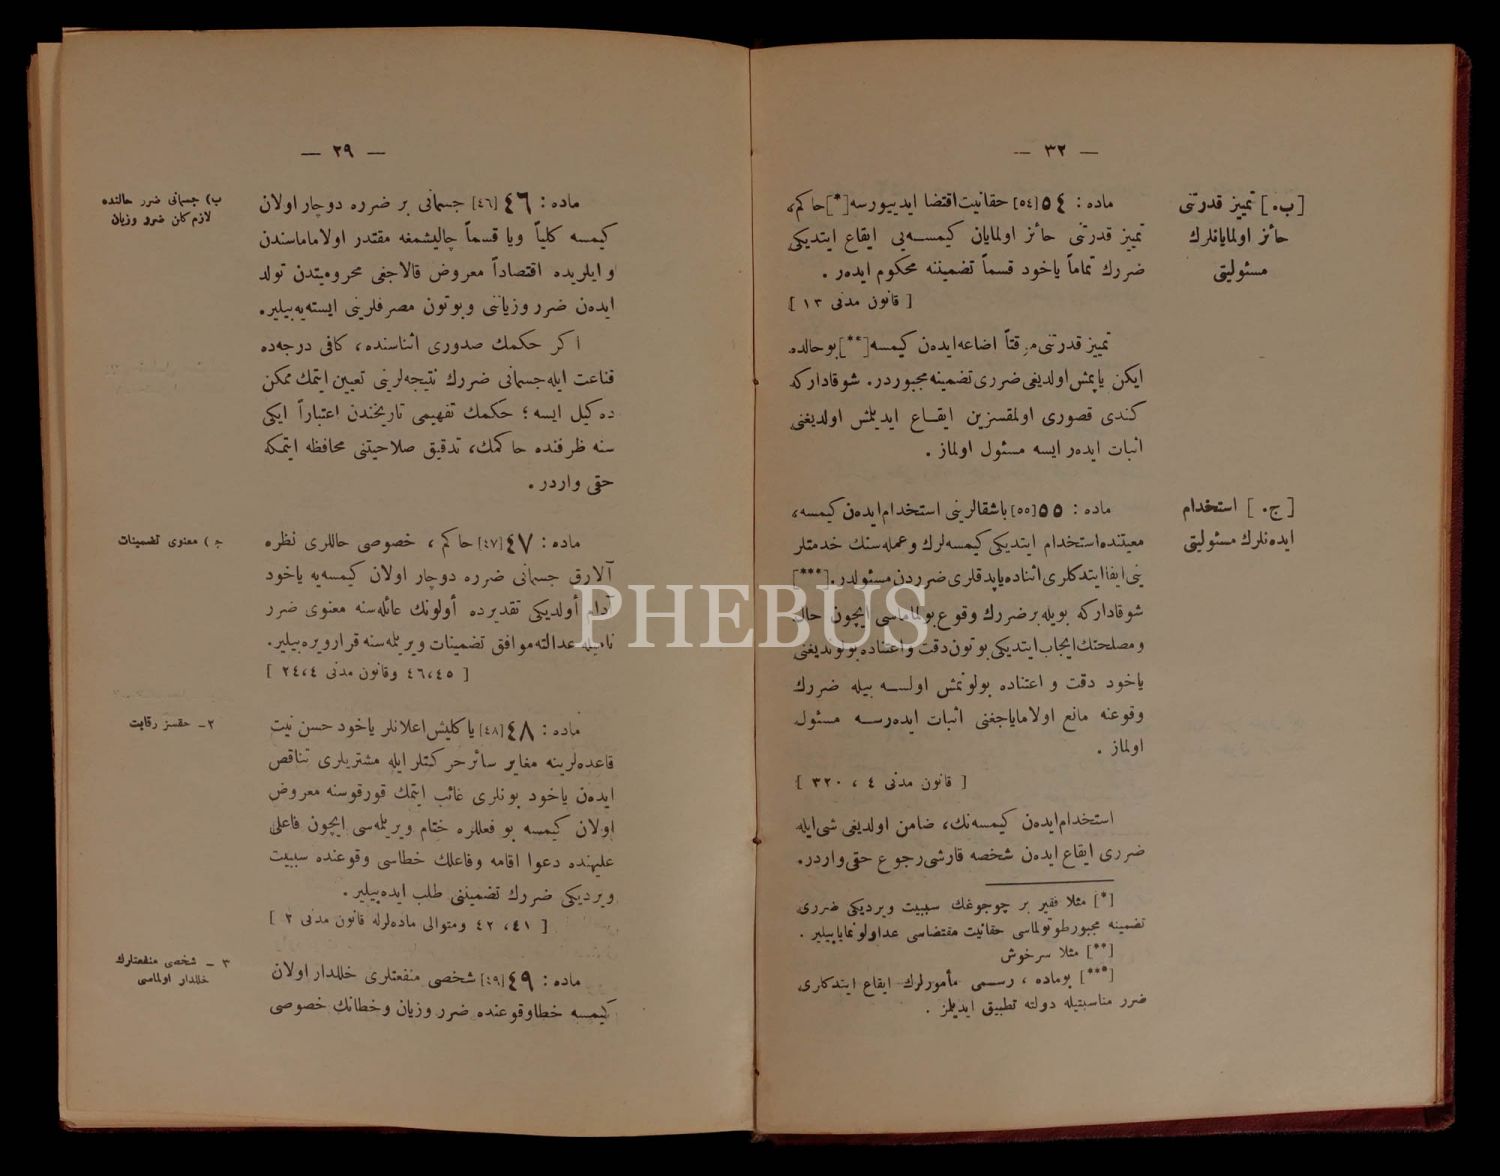 — ٣٢ —
[ب.] تمييز قدرتنى
حائز اولمايانلرك
مسئوليتى
ماده : ٥٤ [٥٤] حقانيت اقتضا ايدييورسه[*] حاكم،
تمييز قدرتنى حائز اولمايان كيمسه‌يى ايقاع ايتديكى
ضررك تماماً ياخود قسماً تضميننه محكوم ايدەر .
[ قانون مدنى ١٣ ]
تمييز قدرتنى موقتاً اضاعه ايدەن كيمسه[**] بو حالده
ايكن ياپمش اولديغى ضررى تضمينه مجبوردر. شو قاداركه
كندى قصورى اولمقسزين ايقاع ايديلمش اولديغنى
اثبات ايدەر ايسه مسئول اولماز .
[ج.] استخدام
ايدەنلرك مسئوليتى
ماده : ٥٥ [٥٥] باشقالرينى استخدام ايدەن كيمسه،
معيتنده استخدام ايتديكى كيمسه‌لرك و عمله‌سنك خدمتلر
ينى ايفا ايتدكلرى اثناده ياپدقلرى ضرردن مسئولدر.[***]
شو قاداركه بويله بر ضررك وقوع بولماماسى ايچون حال
و مصلحتك ايجاب ايتديكى بوتون دقت و اعتناده بولونديغنى
ياخود دقت و اعتناده بولونمش اولسه بيله ضررك
وقوعنه مانع اولاماياجغنى اثبات ايدەرسه مسئول
اولماز .
[ قانون مدنى ٤ ، ٣٢٠ ]
استخدام ايدەن كيمسه‌نك، ضامن اولديغى شى ايله
ضررى ايقاع ايدەن شخصه قارشى رجوع حقى واردر.
[*] مثلا فقير بر چوجوغك سببيت ويرديكى ضررى
تضمينه مجبور طوتولماسى حقانيت مقتضاسى عد اولونمايابيلير .
[**] مثلا سرخوش
[***] بو ماده ، رسمى مأمورلرك ايقاع ايتدكلرى
ضرر مناسبتيله دولته تطبيق ايديلمز .
— ٢٩ —
ب) جسمانى ضرر حالنده
لازم كلن ضرر و زيان
ماده : ٤٦ [٤٦] جسمانى بر ضرره دوچار اولان
كيمسه كلياً ويا قسماً چاليشمغه مقتدر اولاماماسندن
و ايلريده اقتصاداً معروض قالاجغى محروميتدن تولد
ايدەن ضرر و زياننى و بوتون مصرفلرينى ايسته‌يه‌بيلير.
اكر حكمك صدورى اثناسنده، كافى درجه‌ده
قناعت ايله جسمانى ضررك نتيجه‌لرينى تعيين ايتمك ممكن
ده‌كيل ايسه ؛ حكمك تفهيمى تاريخندن اعتباراً ايكى
سنه ظرفنده حاكمك، تدقيق صلاحيتنى محافظه ايتمكه
حقى واردر .
ج) معنوى تضمينات
ماده : ٤٧ [٤٧] حاكم ، خصوصى حاللرى نظره
آلارق جسمانى ضرره دوچار اولان كيمسه‌يه ياخود
آدام أولديكى تقديرده أولونك عائله‌سنه معنوى ضرر
ناميله عدالته موافق تضمينات ويريلمه‌سنه قرار ويره‌بيلير.
[ ٤٦،٤٥ وقانون مدنى ٢٤،٤ ]
٢ـ حقسز رقابت
ماده : ٤٨ [٤٨] ياكليش اعلانلر ياخود حسن نيت
قاعده‌لرينه مغاير سائر حركتلر ايله مشتريلرى تناقص
ايدەن ياخود بونلرى غائب ايتمك قورقوسنه معروض
اولان كيمسه بو فعللره ختام ويريلمه‌سى ايچون فاعلى
عليهنده دعوا اقامه و فاعلك خطاسى وقوعنده سببيت
ويرديكى ضررك تضميننى طلب ايده‌بيلير .
[ ٤١، ٤٢ ومتوالى ماده‌لرله قانون مدنى ٢ ]
٣ ـ شخصى منفعتلرك
خللدار اولماسى
ماده : ٤٩ [٤٩] شخصى منفعتلرى خللدار اولان
كيمسه خطا وقوعنده ضرر و زيان و خطانك خصوصى
PHEBUS